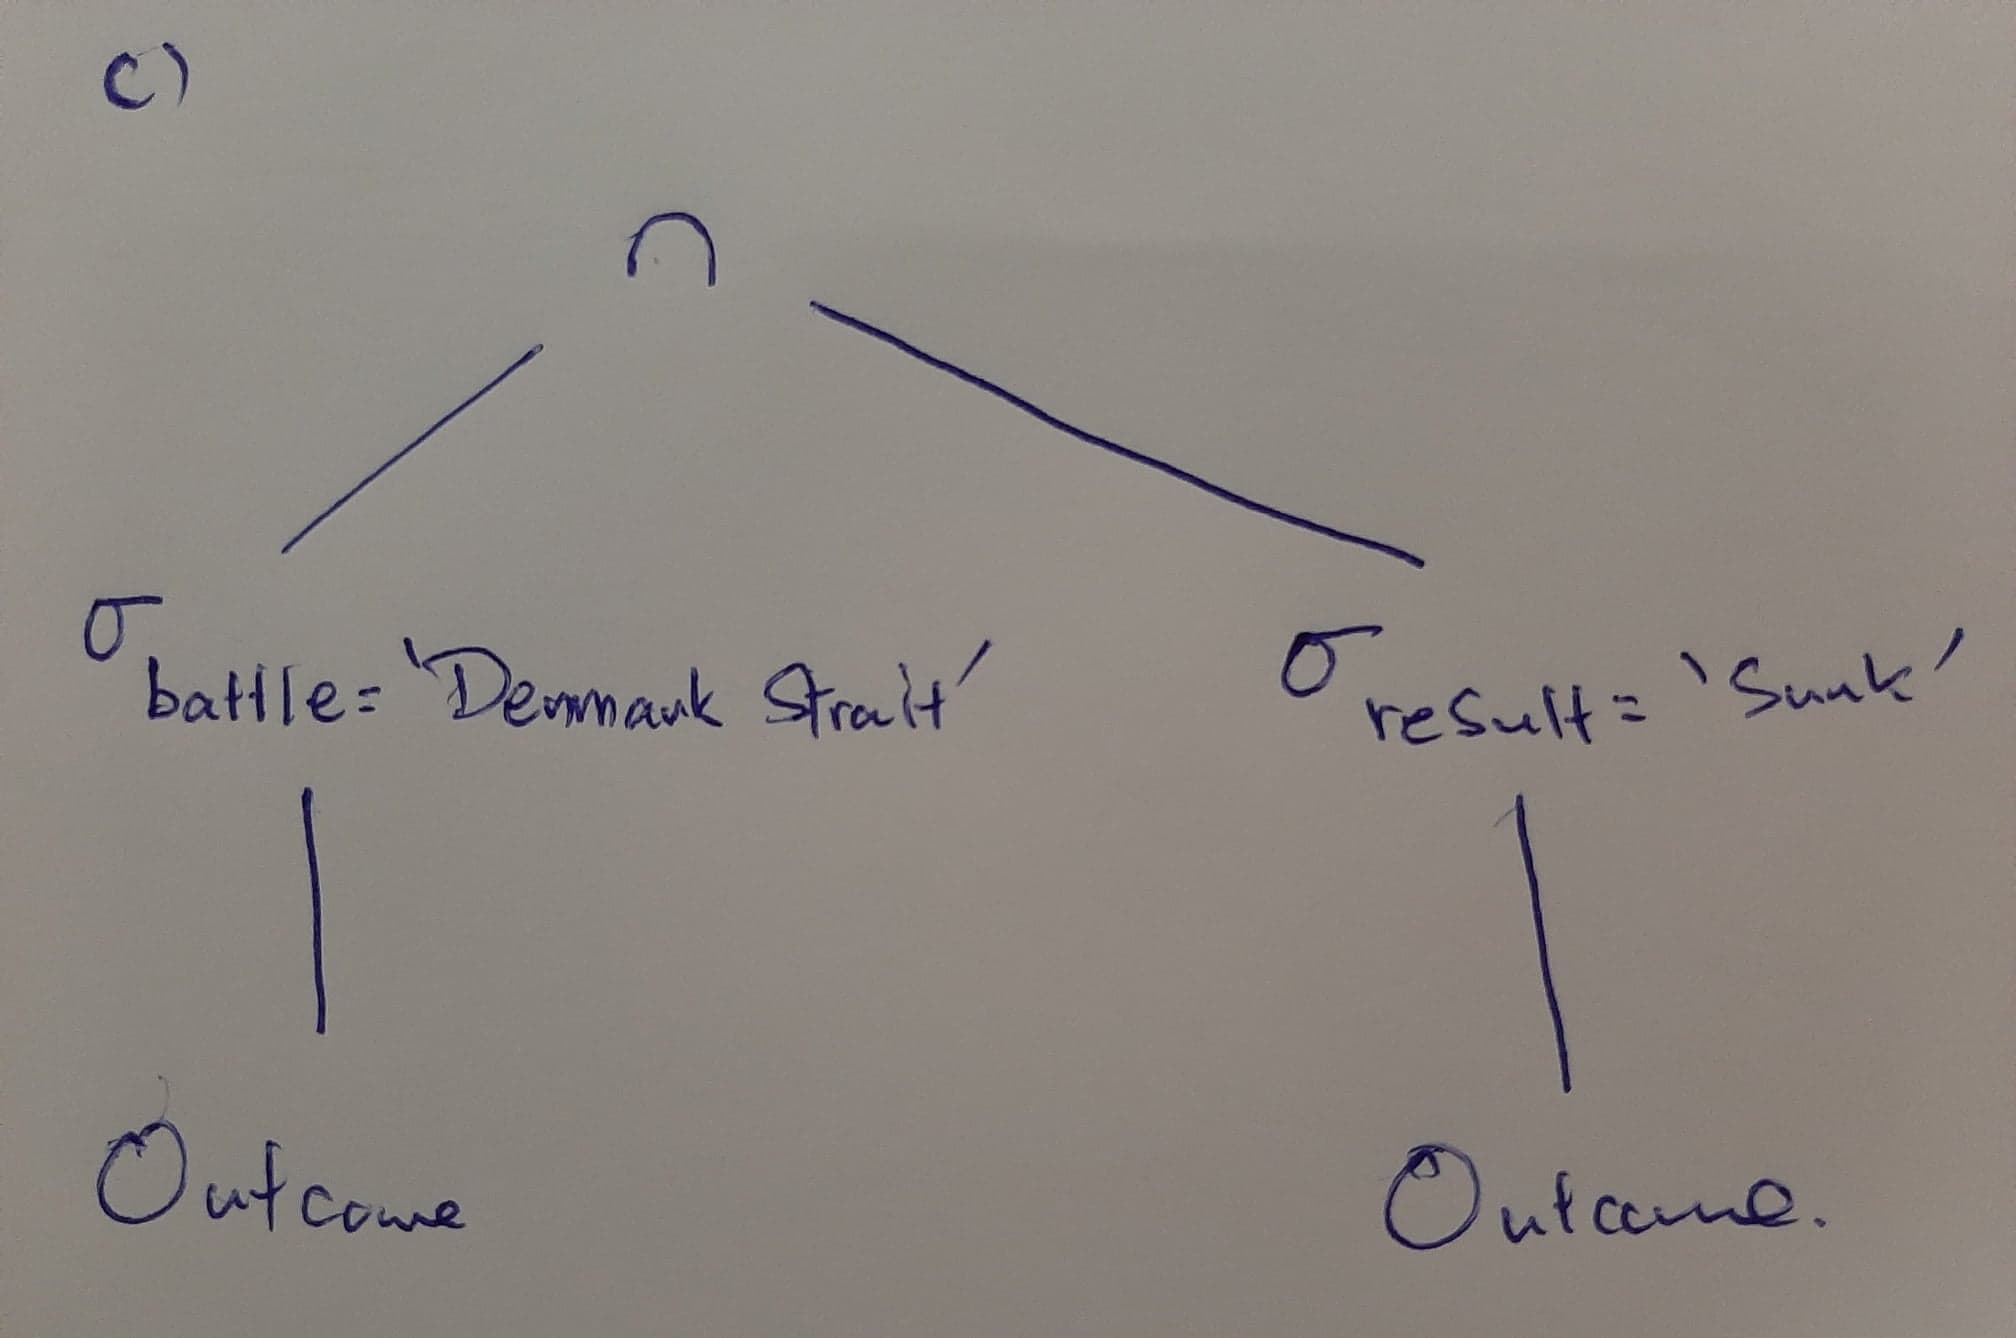 c)
∩
σ battle = 'Denmark Strait'
σ result = 'Sunk'
Outcome
Outcome.